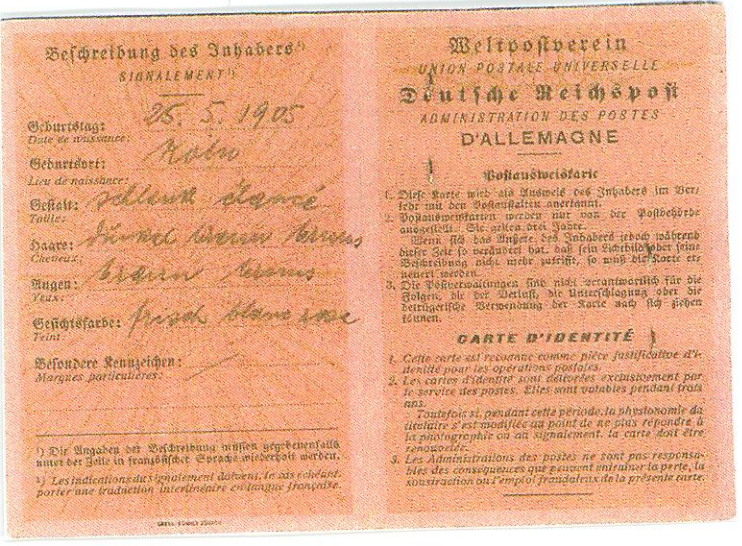 Beschreibung des Inhabers¹⁾
SIGNALEMENT¹⁾
Geburtstag: 25. 5. 1905
Date de naissance:
Geburtsort: Köln
Lieu de naissance:
Gestalt: schlank élancé
Taille:
Haare: dunkel braun bruns
Cheveux:
Augen: braun bruns
Yeux:
Gesichtsfarbe: frisch blanc rose
Teint:
Besondere Kennzeichen:
Marques particulières:
¹⁾ Die Angaben der Beschreibung müssen gegebenenfalls
unter der Zeile in französischer Sprache wiederholt werden.
¹⁾ Les indications du signalement doivent, le cas échéant,
porter une traduction interlinéaire en langue française.
Weltpostverein
UNION POSTALE UNIVERSELLE
Deutsche Reichspost
ADMINISTRATION DES POSTES
D'ALLEMAGNE
Postausweiskarte
1. Diese Karte wird als Ausweis des Inhabers im Ver-
kehr mit den Postanstalten anerkannt.
2. Postausweiskarten werden nur von der Postbehörde
ausgestellt. Sie gelten drei Jahre.
Wenn sich das Äußere des Inhabers jedoch während
dieser Zeit so verändert hat, daß sein Lichtbild oder seine
Beschreibung nicht mehr zutrifft, so muß die Karte er-
neuert werden.
3. Die Postverwaltungen sind nicht verantwortlich für die
Folgen, die der Verlust, die Unterschlagung oder die
betrügerische Verwendung der Karte nach sich ziehen
können.
CARTE D'IDENTITÉ
1. Cette carte est reconnue comme pièce justificative d'i-
dentité pour les opérations postales.
2. Les cartes d'identité sont délivrées exclusivement par
le service des postes. Elles sont valables pendant trois
ans.
Toutefois si, pendant cette période, la physionomie du
titulaire s'est modifiée au point de ne plus répondre à
la photographie ou au signalement, la carte doit être
renouvelée.
3. Les Administrations des postes ne sont pas responsa-
bles des conséquences que peuvent entraîner la perte, la
soustraction ou l'emploi frauduleux de la présente carte.